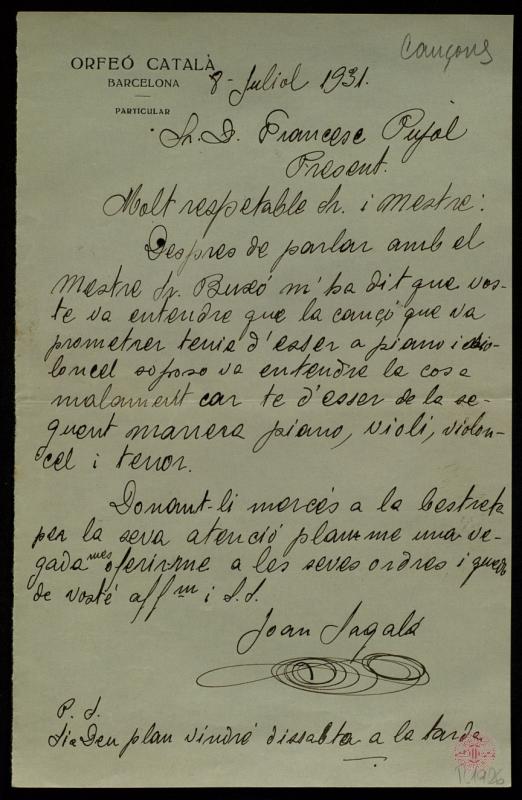 Cançons
ORFEÓ CATALÀ
BARCELONA
PARTICULAR
8 - Juliol 1931.
Sr. D. Francesc Pujol
Present.
Molt respetable Sr. i Mestre:
Despres de parlar amb el
Mestre Sr. Buxó m'ha dit que vos-
te va entendre que la cançó que va
prometrer tenia d'esser a piano i vio-
loncel soposo va entendre la cosa
malament car te d'esser de la se-
guent manera piano, violi, violon-
cel i tenor.
Donant-li mercés a la bestreta
per la seva atenció plau-me una ve-
gada mes oferirme a les seves ordres i quedo
de vosté affm i S.S.
Joan Sagalá
P. S.
Si a Deu plau vindré dissabta a la tarda